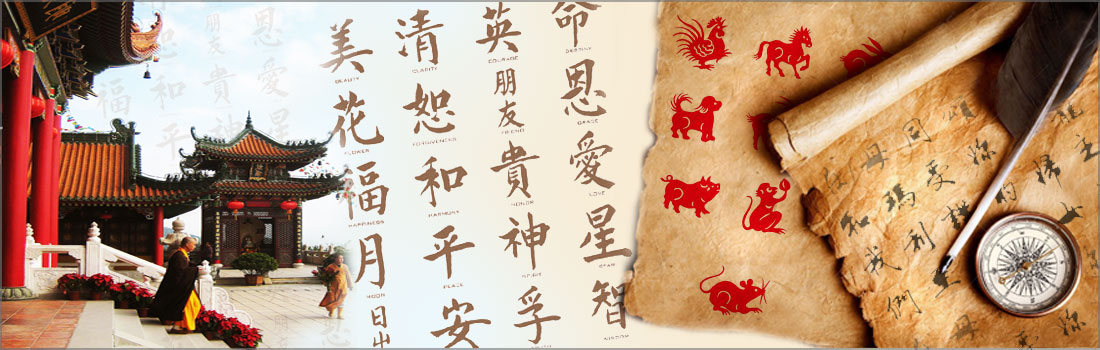 美
BEAUTY
花
FLOWER
福
HAPPINESS
月
MOON
日出
清
CLARITY
恕
FORGIVENESS
和
HARMONY
平
PEACE
安
英
COURAGE
朋友
FRIEND
貴
HONOR
神
SPIRIT
孚
命
DESTINY
恩
GRACE
愛
LOVE
星
STAR
智
WISDOM
福
和
平
朋友
貴
神
恩
愛
星
母
同
和
瑪
妳
我
利
的
主
們